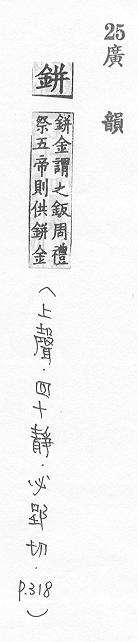 25廣韻
鉼
鉼金謂之鈑周禮
祭五帝則供鉼金
(上聲.四十靜.必郢切.P.318)